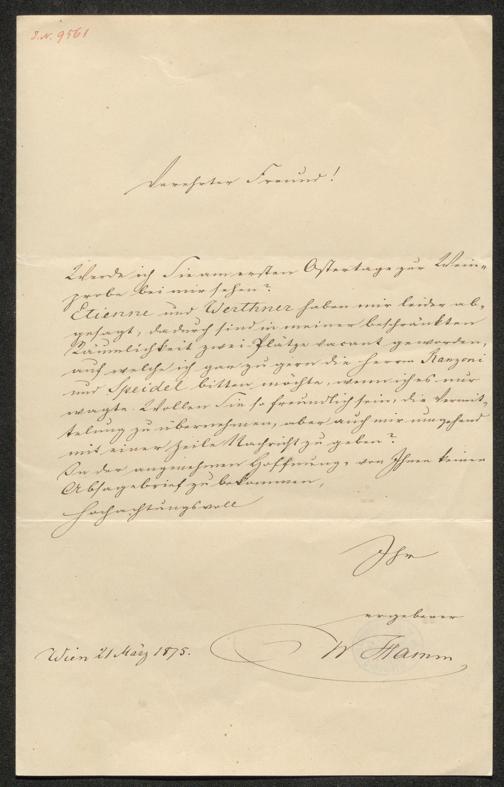 J. N. 9561
Verehrter Freund!
Werde ich Sie am ersten Ostertage zur Wein-
probe bei mir sehen?
Etienne und Werthner haben mir leider ab-
gesagt, dadurch sind in meiner beschränkten
Räumlichkeit zwei Plätze vacant geworden,
auf welche ich gar zu gern die Herrn Ranzoni
und Speidel bitten möchte, wenn ich es nur
wagte. Wollen Sie so freundlich sein, die Vermit-
telung zu übernehmen, aber auch mir umgehend
mit einer Zeile Nachricht zu geben?
In der angenehmen Hoffnung, von Ihnen keinen
Absagebrief zu bekommen,
hochachtungsvoll
Ihr
ergebener
W Hamm
Wien 21 März 1875.